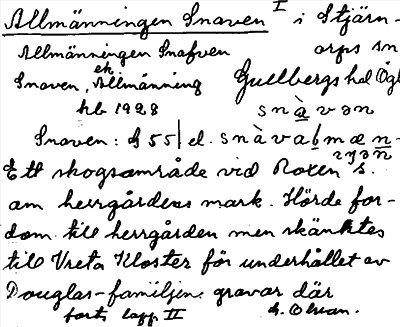 Allmänningen Snaven I i Stjärn-
Allmänningen Snafven orps sn
Snaven, ek Allmänning Gullbergs hd Ögl
hb 1928 snàvən
Snaven: G 55| el. snàvabmæn-
ıŋən
Ett skogsområde vid Roxen s.
om herrgårdens mark. Hörde for-
dom till herrgården men skänktes
till Vreta Kloster för underhållet av
Douglas-familjens gravar där
forts lapp II